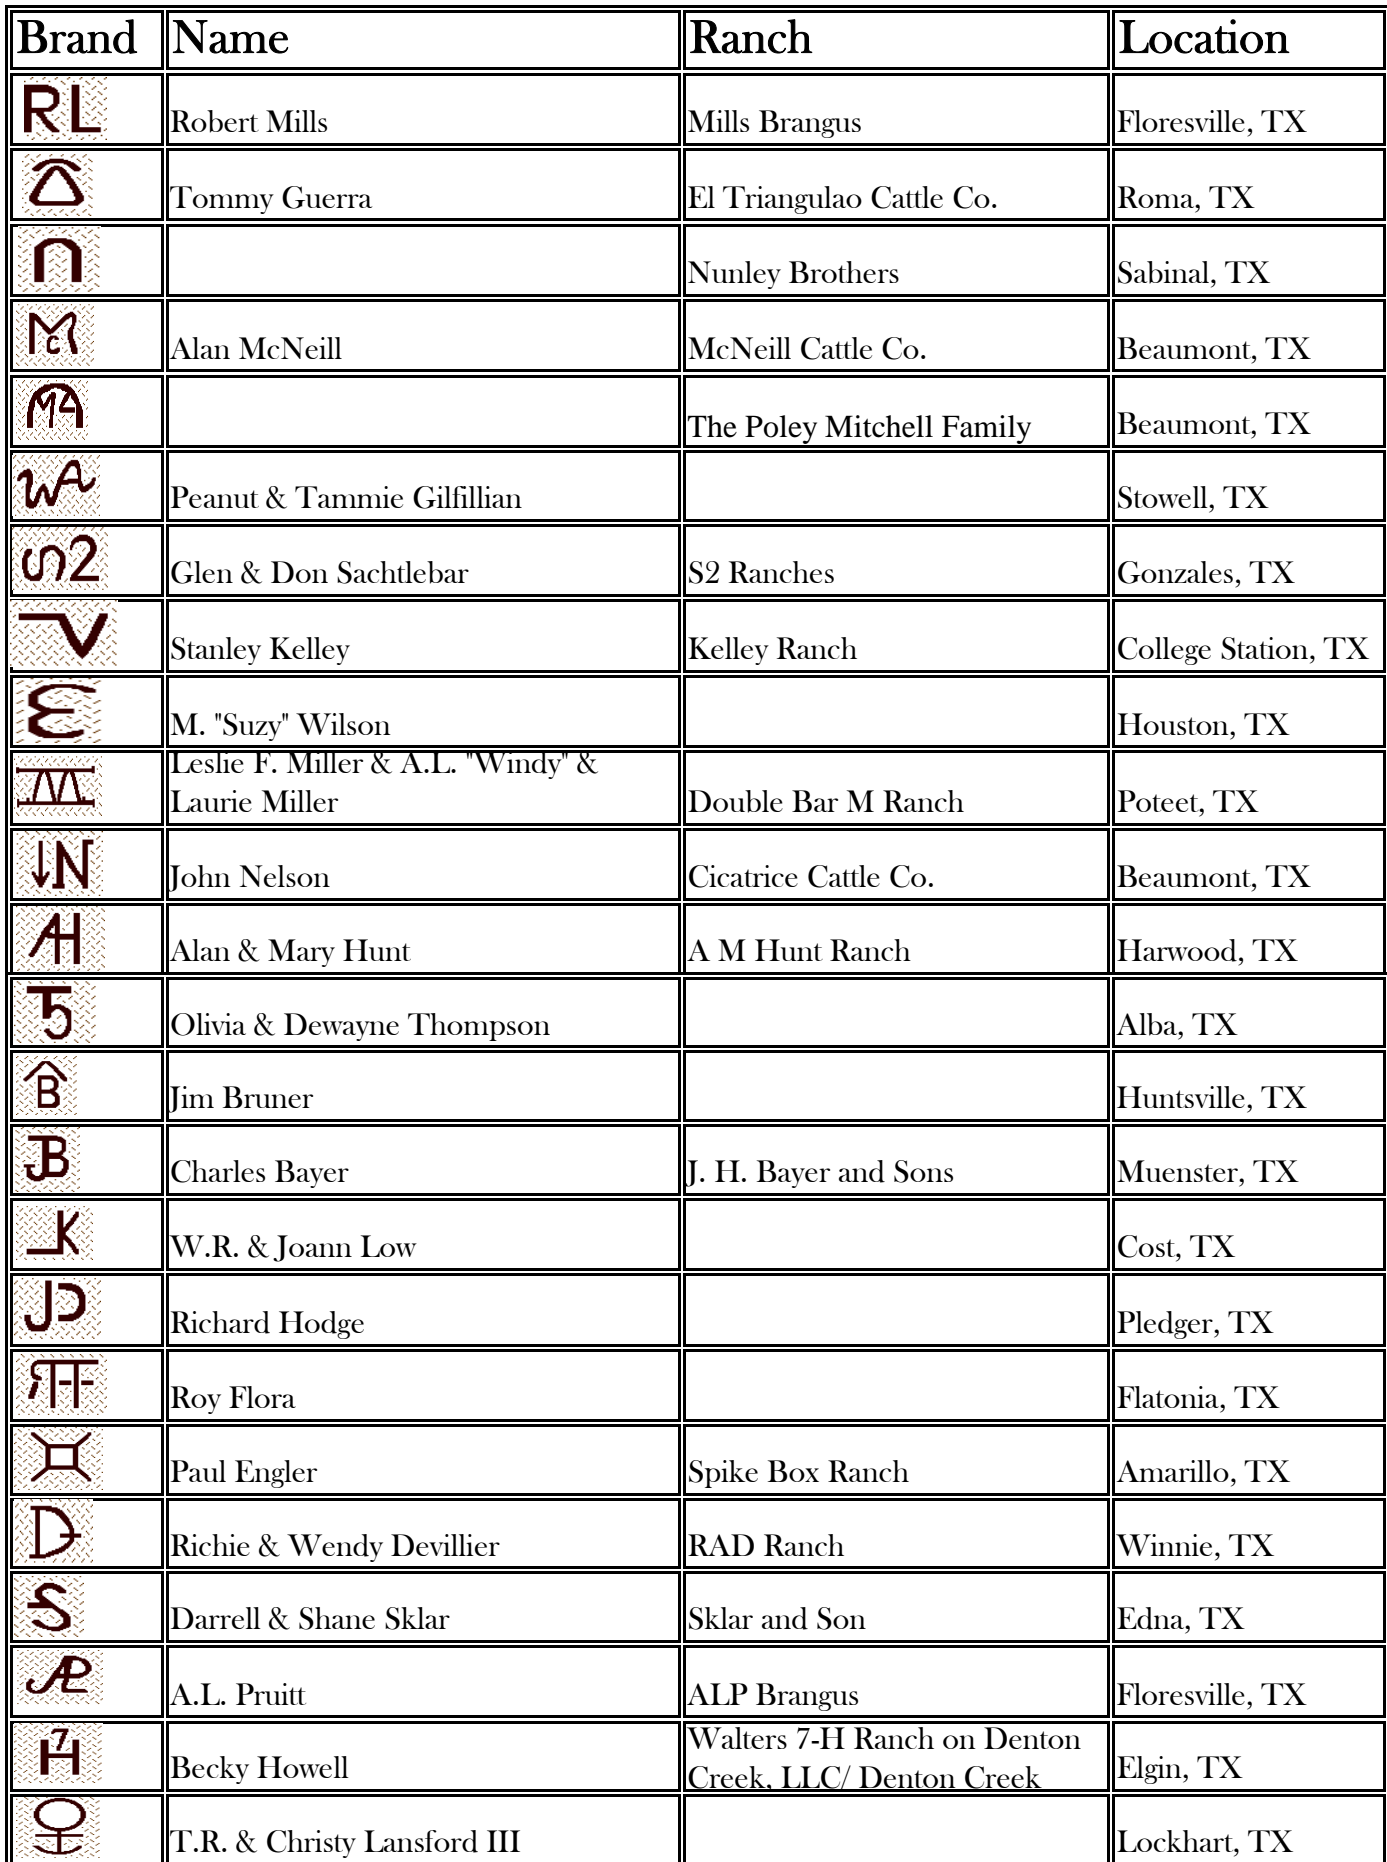 Brand Name Ranch Location
RL Robert Mills Mills Brangus Floresville, TX
Tommy Guerra El Triangulao Cattle Co. Roma, TX
Nunley Brothers Sabinal, TX
Mc Alan McNeill McNeill Cattle Co. Beaumont, TX
The Poley Mitchell Family Beaumont, TX
WA Peanut & Tammie Gilfillian Stowell, TX
S2 Glen & Don Sachtlebar S2 Ranches Gonzales, TX
Stanley Kelley Kelley Ranch College Station, TX
M. "Suzy" Wilson Houston, TX
Leslie F. Miller & A.L. "Windy" &
Laurie Miller Double Bar M Ranch Poteet, TX
N John Nelson Cicatrice Cattle Co. Beaumont, TX
AH Alan & Mary Hunt A M Hunt Ranch Harwood, TX
T5 Olivia & Dewayne Thompson Alba, TX
B Jim Bruner Huntsville, TX
JB Charles Bayer J. H. Bayer and Sons Muenster, TX
K W.R. & Joann Low Cost, TX
JD Richard Hodge Pledger, TX
Roy Flora Flatonia, TX
Paul Engler Spike Box Ranch Amarillo, TX
D Richie & Wendy Devillier RAD Ranch Winnie, TX
S Darrell & Shane Sklar Sklar and Son Edna, TX
A.L. Pruitt ALP Brangus Floresville, TX
Walters 7-H Ranch on Denton
7H Becky Howell Creek, LLC/ Denton Creek Elgin, TX
T.R. & Christy Lansford III Lockhart, TX